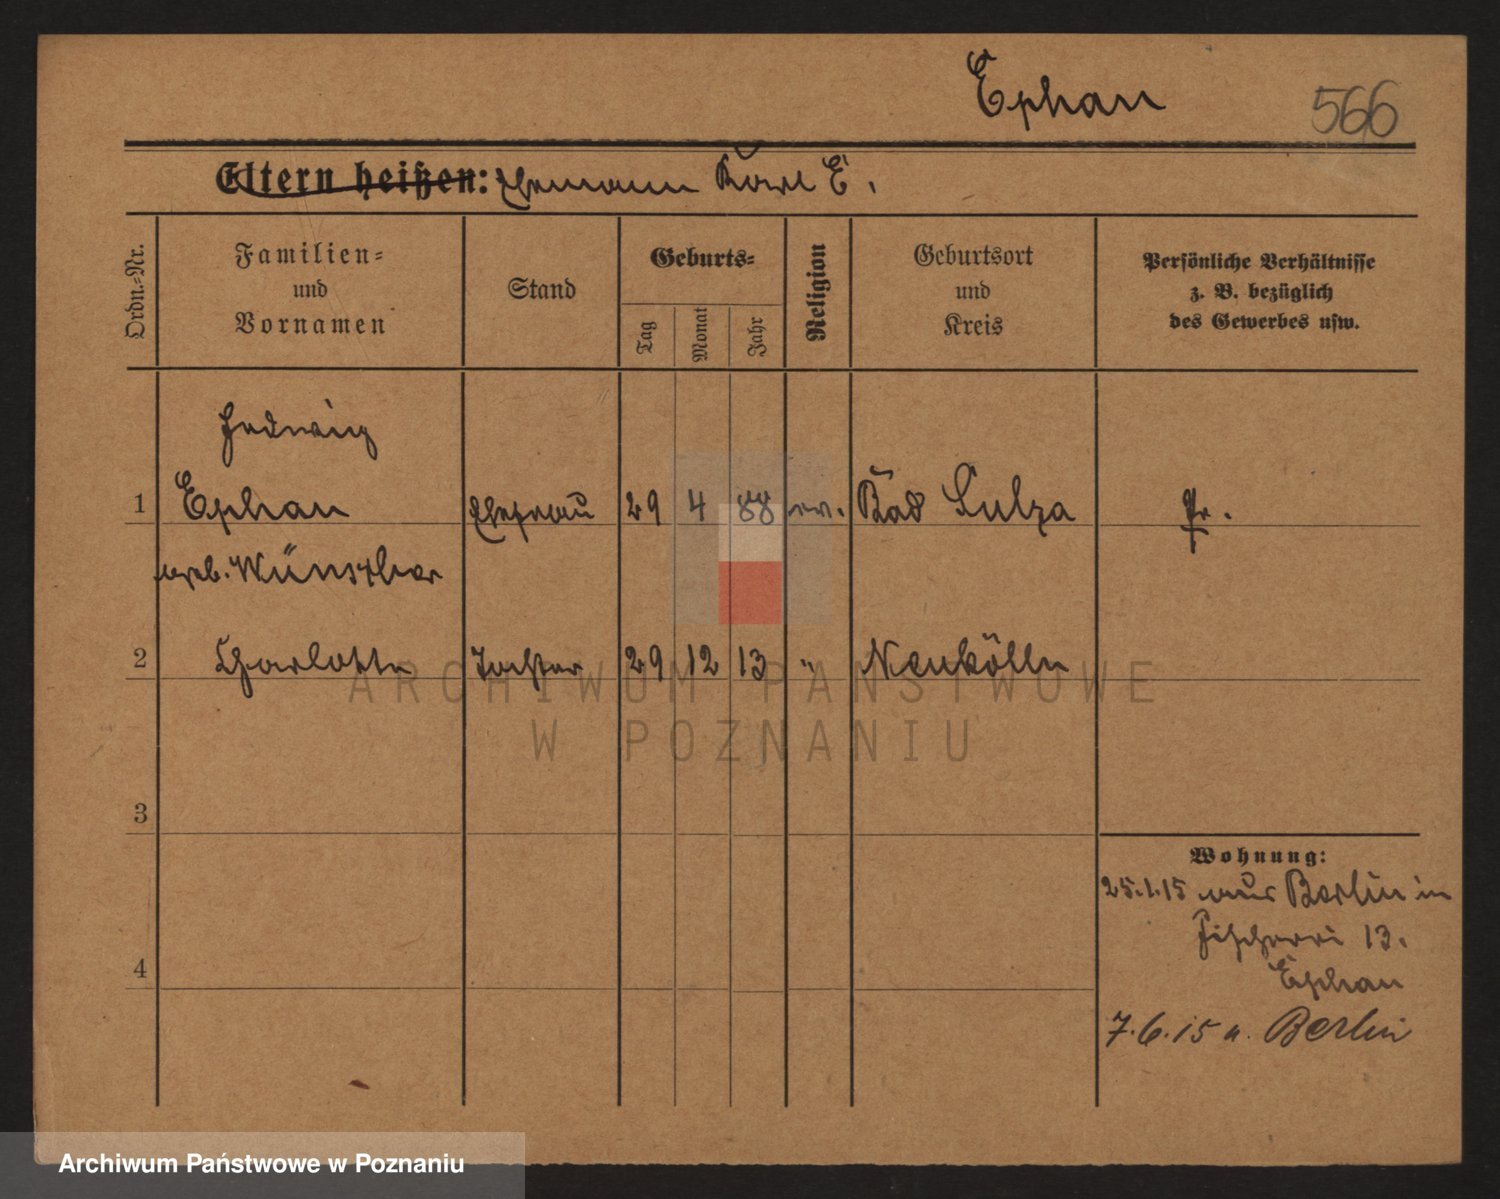 Ephan
566
Eltern heißen: Ehemann Karl E.
Ordn.-Nr.
Familien-
und
Vornamen
Stand
Geburts-
Tag
Monat
Jahr
Religion
Geburtsort
und
Kreis
Persönliche Verhältnisse
z. B. bezüglich
des Gewerbes usw.
Hedwig
1 Ephan Ehefrau 29 4 88 ev. Bad Sulza Pr.
geb. Wünscher
2 Charlotte Tochter 29 12 13 " Neukölln
ARCHIWUM PAŃSTWOWE
W POZNANIU
3
Wohnung:
25.1.15 aus Berlin in
Fischerei 13.
4
Ephan
7.6.15 n. Berlin
Archiwum Państwowe w Poznaniu